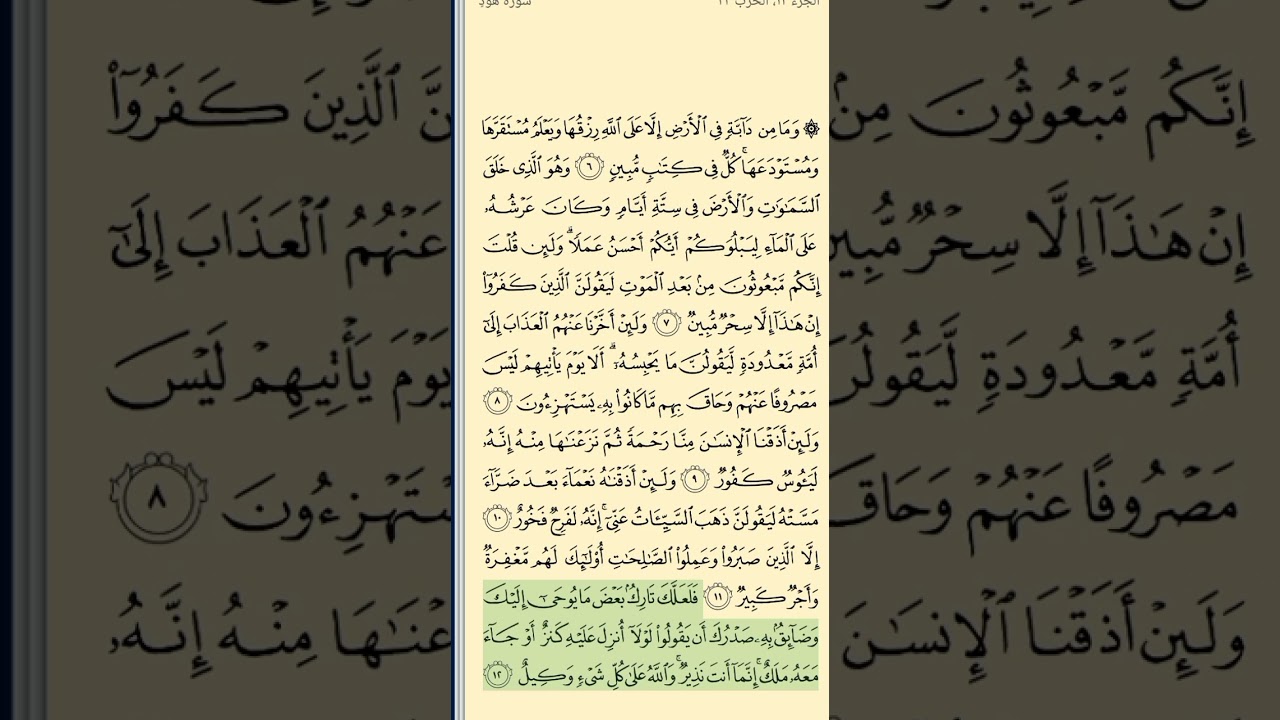 الجزء ١٢، الحزب ٢٣
سورة هود
۞ وَمَا مِن دَآبَّةٖ فِي ٱلۡأَرۡضِ إِلَّا عَلَى ٱللَّهِ رِزۡقُهَا وَيَعۡلَمُ مُسۡتَقَرَّهَا
وَمُسۡتَوۡدَعَهَاۚ كُلّٞ فِي كِتَٰبٖ مُّبِينٖ ٦ وَهُوَ ٱلَّذِي خَلَقَ
ٱلسَّمَٰوَٰتِ وَٱلۡأَرۡضَ فِي سِتَّةِ أَيَّامٖ وَكَانَ عَرۡشُهُۥ
عَلَى ٱلۡمَآءِ لِيَبۡلُوَكُمۡ أَيُّكُمۡ أَحۡسَنُ عَمَلٗاۗ وَلَئِن قُلۡتَ
إِنَّكُم مَّبۡعُوثُونَ مِنۢ بَعۡدِ ٱلۡمَوۡتِ لَيَقُولَنَّ ٱلَّذِينَ كَفَرُوٓاْ
إِنۡ هَٰذَآ إِلَّا سِحۡرٞ مُّبِينٞ ٧ وَلَئِنۡ أَخَّرۡنَا عَنۡهُمُ ٱلۡعَذَابَ إِلَىٰٓ
أُمَّةٖ مَّعۡدُودَةٖ لَّيَقُولُنَّ مَا يَحۡبِسُهُۥٓۗ أَلَا يَوۡمَ يَأۡتِيهِمۡ لَيۡسَ
مَصۡرُوفًا عَنۡهُمۡ وَحَاقَ بِهِم مَّا كَانُواْ بِهِۦ يَسۡتَهۡزِءُونَ ٨
وَلَئِنۡ أَذَقۡنَا ٱلۡإِنسَٰنَ مِنَّا رَحۡمَةٗ ثُمَّ نَزَعۡنَٰهَا مِنۡهُ إِنَّهُۥ
لَيَـُٔوسٞ كَفُورٞ ٩ وَلَئِنۡ أَذَقۡنَٰهُ نَعۡمَآءَ بَعۡدَ ضَرَّآءَ
مَسَّتۡهُ لَيَقُولَنَّ ذَهَبَ ٱلسَّيِّـَٔاتُ عَنِّيٓۚ إِنَّهُۥ لَفَرِحٞ فَخُورٌ ١٠
إِلَّا ٱلَّذِينَ صَبَرُواْ وَعَمِلُواْ ٱلصَّٰلِحَٰتِ أُوْلَٰٓئِكَ لَهُم مَّغۡفِرَةٞ
وَأَجۡرٞ كَبِيرٞ ١١ فَلَعَلَّكَ تَارِكُۢ بَعۡضَ مَا يُوحَىٰٓ إِلَيۡكَ
وَضَآئِقُۢ بِهِۦ صَدۡرُكَ أَن يَقُولُواْ لَوۡلَآ أُنزِلَ عَلَيۡهِ كَنزٌ أَوۡ جَآءَ
مَعَهُۥ مَلَكٌۚ إِنَّمَآ أَنتَ نَذِيرٞۚ وَٱللَّهُ عَلَىٰ كُلِّ شَيۡءٖ وَكِيلٌ ١٢